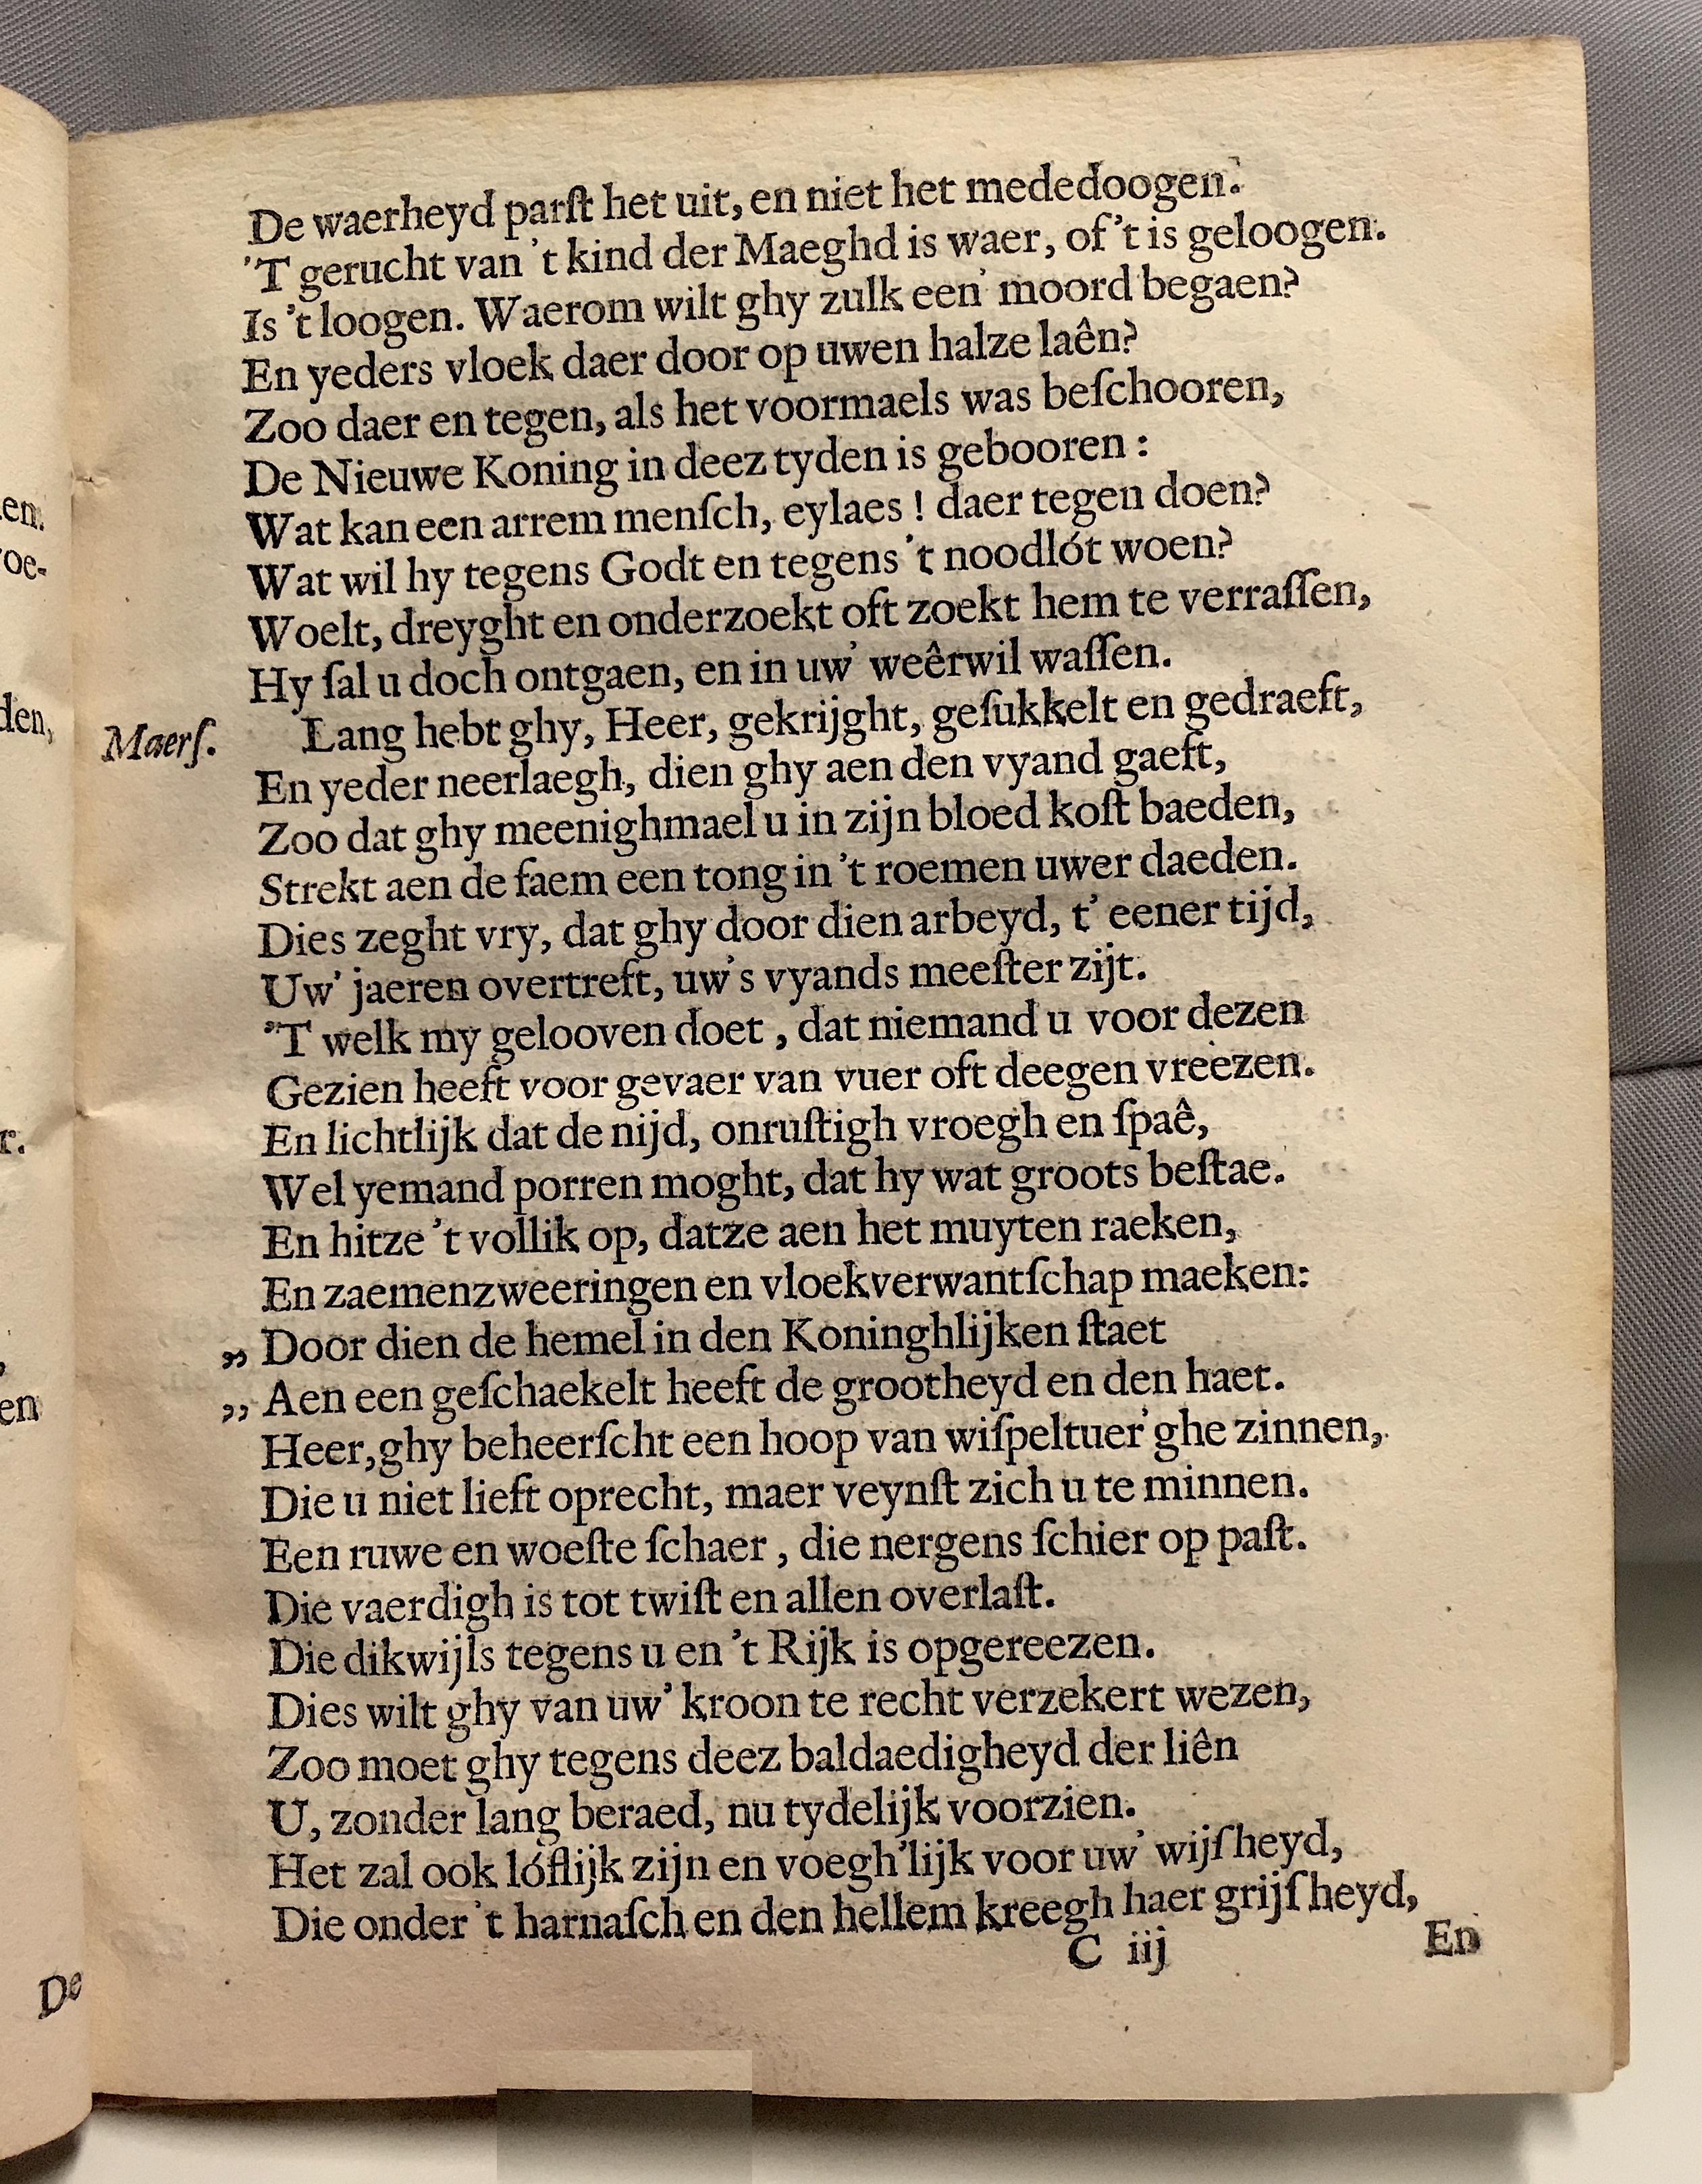 De waerheyd parſt het uit, en niet het mededoogen.
'T gerucht van 't kind der Maeghd is waer, of 't is geloogen.
Is 't loogen. Waerom wilt ghy zulk een' moord begaen?
En yeders vloek daer door op uwen halze laên?
Zoo daer en tegen, als het voormaels was beſchooren,
De Nieuwe Koning in deez tyden is gebooren:
Wat kan een arrem menſch, eylaes! daer tegen doen?
Wat wil hy tegens Godt en tegens 't noodlót woen?
Woelt, dreyght en onderzoekt oft zoekt hem te verraſſen,
Hy ſal u doch ontgaen, en in uw' weêrwil waſſen.
Maerſ. Lang hebt ghy, Heer, gekrijght, geſukkelt en gedraeft,
En yeder neerlaegh, dien ghy aen den vyand gaeft,
Zoo dat ghy meenighmael u in zijn bloed koſt baeden,
Strekt aen de faem een tong in 't roemen uwer daeden.
Dies zeght vry, dat ghy door dien arbeyd, t' eener tijd,
Uw' jaeren overtreft, uw's vyands meeſter zijt.
'T welk my gelooven doet, dat niemand u voor dezen
Gezien heeft voor gevaer van vuer oft deegen vreezen.
En lichtlijk dat de nijd, onruſtigh vroegh en ſpaê,
Wel yemand porren moght, dat hy wat groots beſtae.
En hitze 't vollik op, datze aen het muyten raeken,
En zaemenzweeringen en vloekverwantſchap maeken:
„ Door dien de hemel in den Koninghlijken ſtaet
„ Aen een geſchaekelt heeft de grootheyd en den haet.
Heer, ghy beheerſcht een hoop van wiſpeltuer'ghe zinnen,
Die u niet lieft oprecht, maer veynſt zich u te minnen.
Een ruwe en woeſte ſchaer, die nergens ſchier op paſt.
Die vaerdigh is tot twiſt en allen overlaſt.
Die dikwijls tegens u en 't Rijk is opgereezen.
Dies wilt ghy van uw' kroon te recht verzekert wezen,
Zoo moet ghy tegens deez baldaedigheyd der liên
U, zonder lang beraed, nu tydelijk voorzien.
Het zal ook lóflijk zijn en voegh'lijk voor uw' wijſheyd,
Die onder 't harnaſch en den hellem kreegh haer grijſheyd,
C iij En